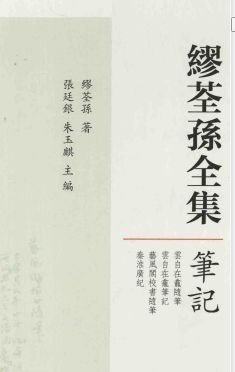 繆荃孫全集
筆記
雲自在龕隨筆
雲自在龕筆記
藝風閣校書隨筆
秦淮廣紀
繆荃孫 著
張廷銀 朱玉麒 主編